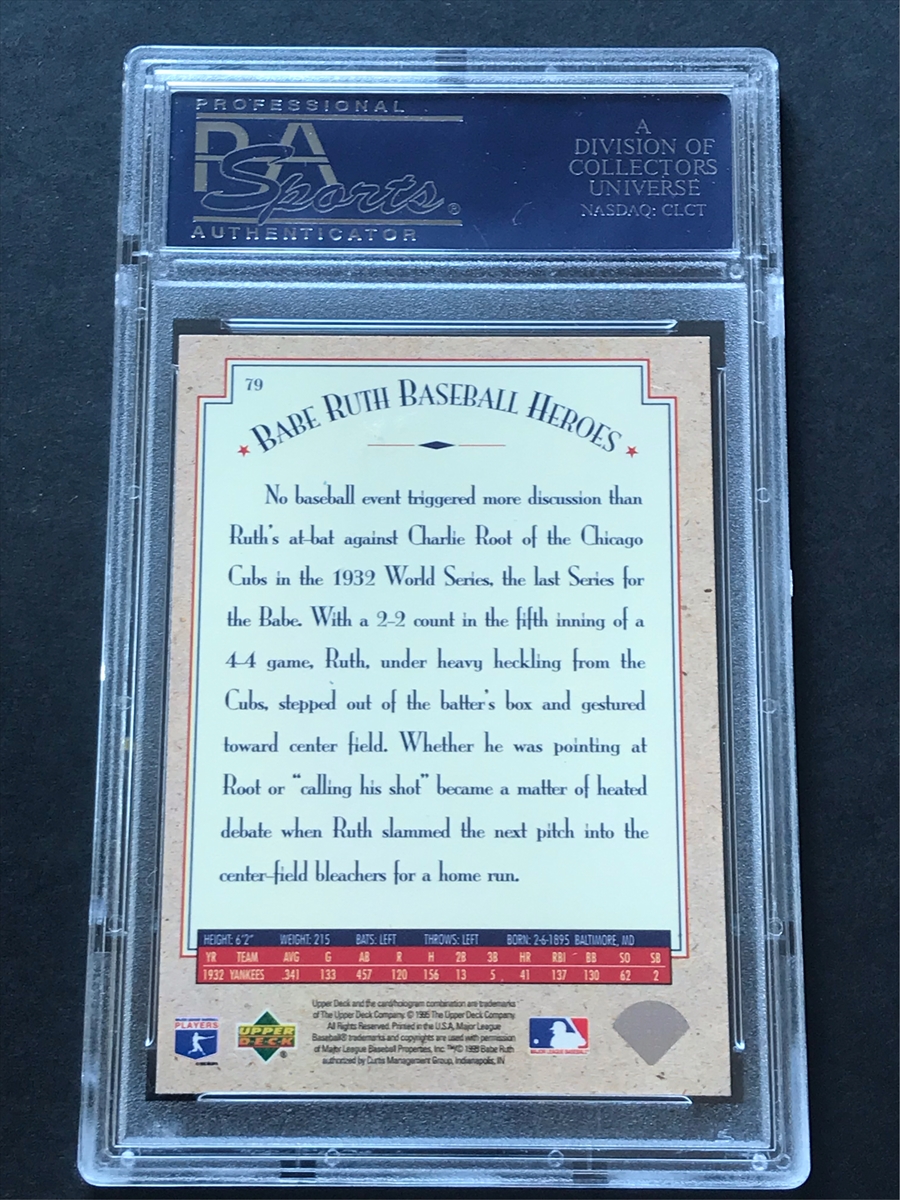 PROFESSIONAL
PSA
Sports®
AUTHENTICATOR
A
DIVISION OF
COLLECTORS
UNIVERSE
NASDAQ: CLCT
79
BABE RUTH BASEBALL HEROES
No baseball event triggered more discussion than
Ruth's at-bat against Charlie Root of the Chicago
Cubs in the 1932 World Series, the last Series for
the Babe. With a 2-2 count in the fifth inning of a
4-4 game, Ruth, under heavy heckling from the
Cubs, stepped out of the batter's box and gestured
toward center field. Whether he was pointing at
Root or “calling his shot” became a matter of heated
debate when Ruth slammed the next pitch into the
center-field bleachers for a home run.
HEIGHT: 6'2" WEIGHT: 215 BATS: LEFT THROWS: LEFT BORN: 2-6-1895 BALTIMORE, MD
YR TEAM AVG G AB R H 2B 3B HR RBI BB SO SB
1932 YANKEES .341 133 457 120 156 13 5 41 137 130 62 2
Upper Deck and the card/hologram combination are trademarks
of The Upper Deck Company. © 1995 The Upper Deck Company.
All Rights Reserved. Printed in the U.S.A. Major League
Baseball® trademarks and copyrights are used with permission
of Major League Baseball Properties, Inc. Babe Ruth
authorized by Curtis Management Group, Indianapolis, IN
PLAYERS
UPPER
DECK®
MAJOR LEAGUE BASEBALL